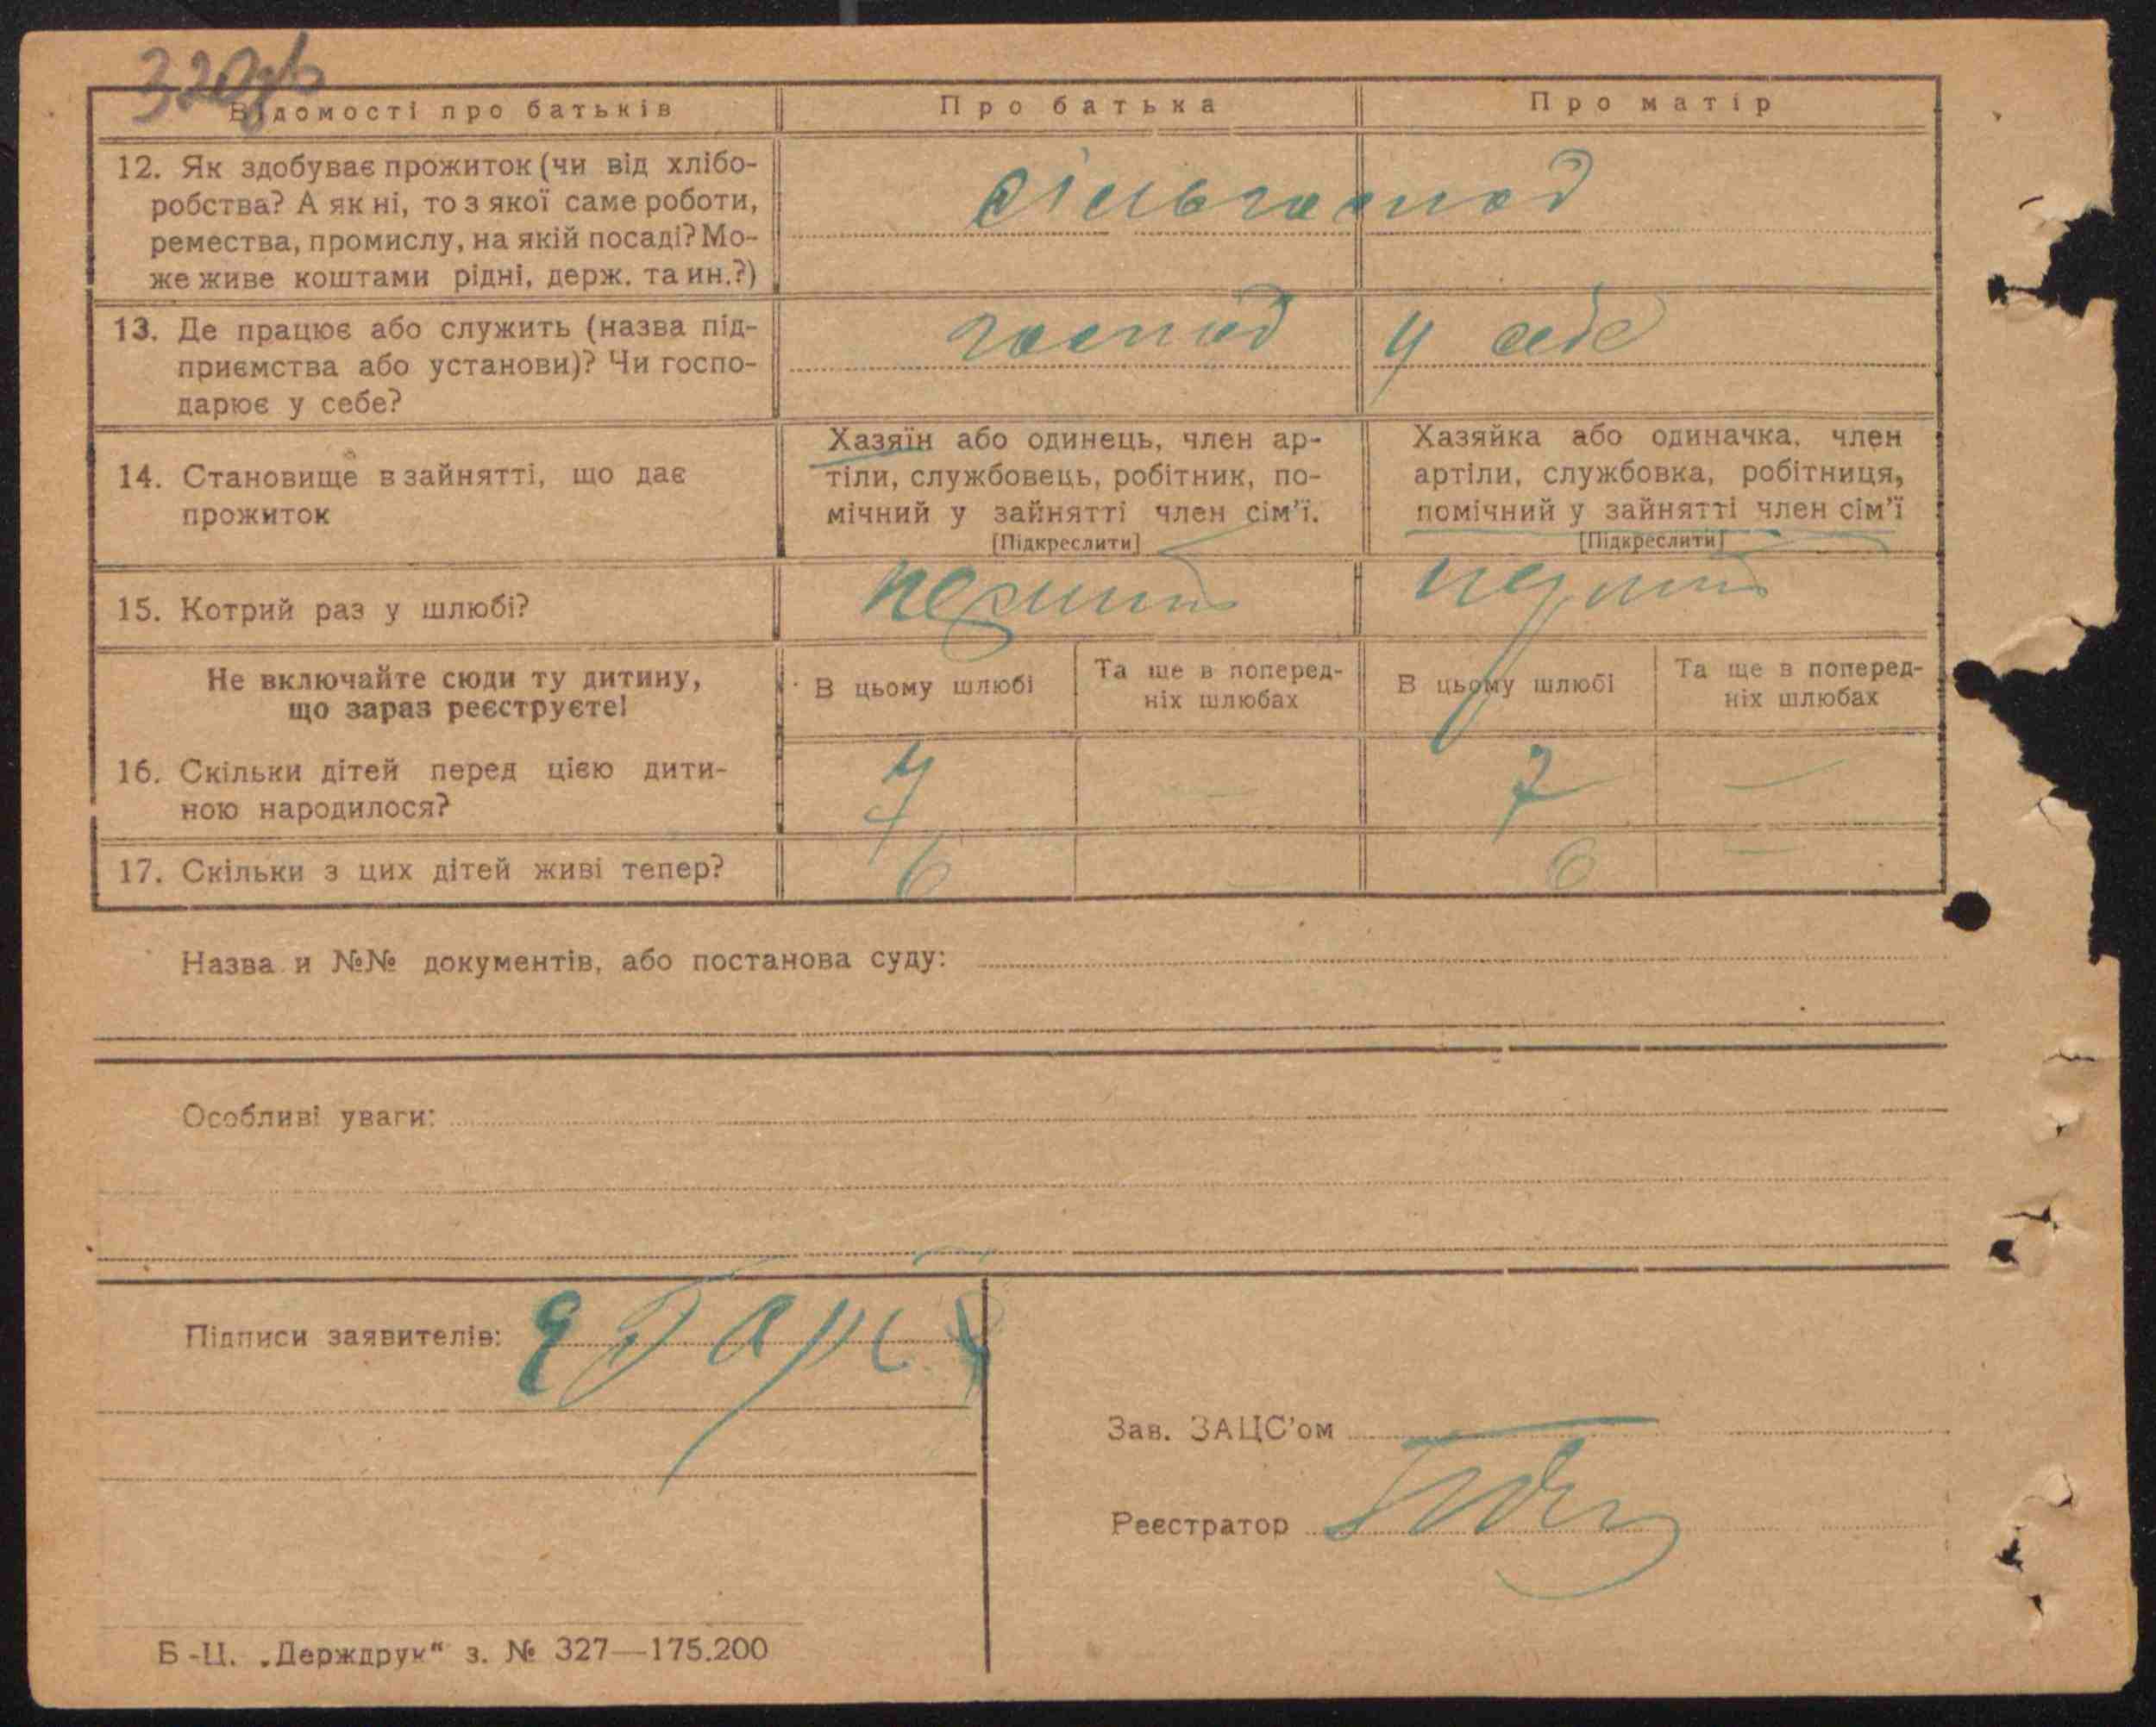 320зв
Відомості про батьків
Про батька
Про матір
12. Як здобуває прожиток (чи від хлібо-
робства? А як ні, то з якої саме роботи,
ремества, промислу, на якій посаді? Мо-
же живе коштами рідні, держ. та ин.?)
сільгоспод
13. Де працює або служить (назва під-
приємства або установи)? Чи госпо-
дарює у себе?
господ у себе
14. Становище в зайнятті, що дає
прожиток
Хазяїн або одинець, член ар-
тіли, службовець, робітник, по-
мічний у зайнятті член сім'ї.
[Підкреслити]
Хазяйка або одиначка, член
артіли, службовка, робітниця,
помічний у зайнятті член сім'ї
[Підкреслити]
15. Котрий раз у шлюбі?
Не включайте сюди ту дитину,
що зараз реєструєте!
В цьому шлюбі
Та ще в поперед-
ніх шлюбах
В цьому шлюбі
Та ще в поперед-
ніх шлюбах
16. Скільки дітей перед цією дити-
ною народилося?
7 — 7 —
17. Скільки з цих дітей живі тепер?
6 — 6 —
Назва и №№ документів, або постанова суду:
Особливі уваги:
Підписи заявителів:
Зав. ЗАЦС'ом
Реєстратор
Б-Ц. „Держдрук“ з. № 327—175.200